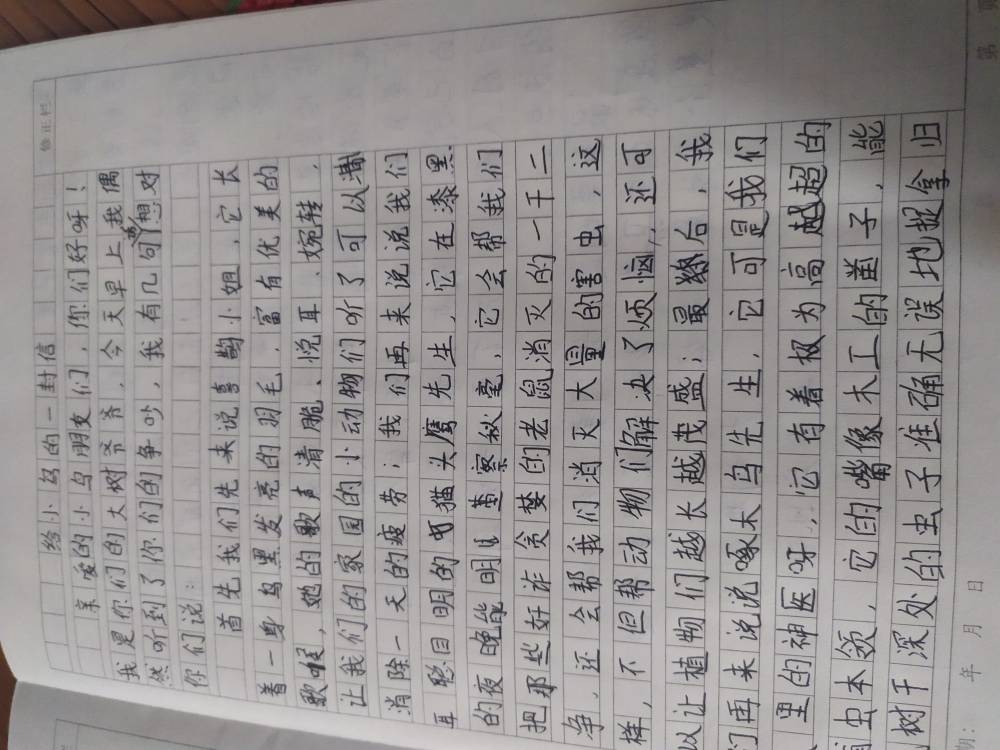 修正栏
给小鸟的一封信
亲爱的小鸟朋友们，你们好呀！
我是你们的大树爷爷，今天早上我偶
然听到了你们的争吵，我有几句想对
你们说：
首先我们先来说喜鹊小姐，它长
着一身乌黑发亮的羽毛，富有优美的
歌喉，她的歌声清脆、悦耳、婉转，
让我们的家园的小动物们听了可以
消除一天的疲劳；我们再来说说我们
耳聪目明的猫头鹰先生，它在漆黑
的夜晚能明察秋毫，它会帮我们
把那些奸诈贪婪的老鼠消灭的一干二
争，还会帮我们消灭大量的害虫，这
样，不但帮动物们解决了烦恼，还可
以让植物们越长越茂盛；最后，我
们再来说说啄木鸟先生，它可是我们
里的神医呀，它有着极为高超的
虫本领，它的嘴像木工的凿子，能
树干深处的虫子准确无误地捉拿归
年 月 日
第